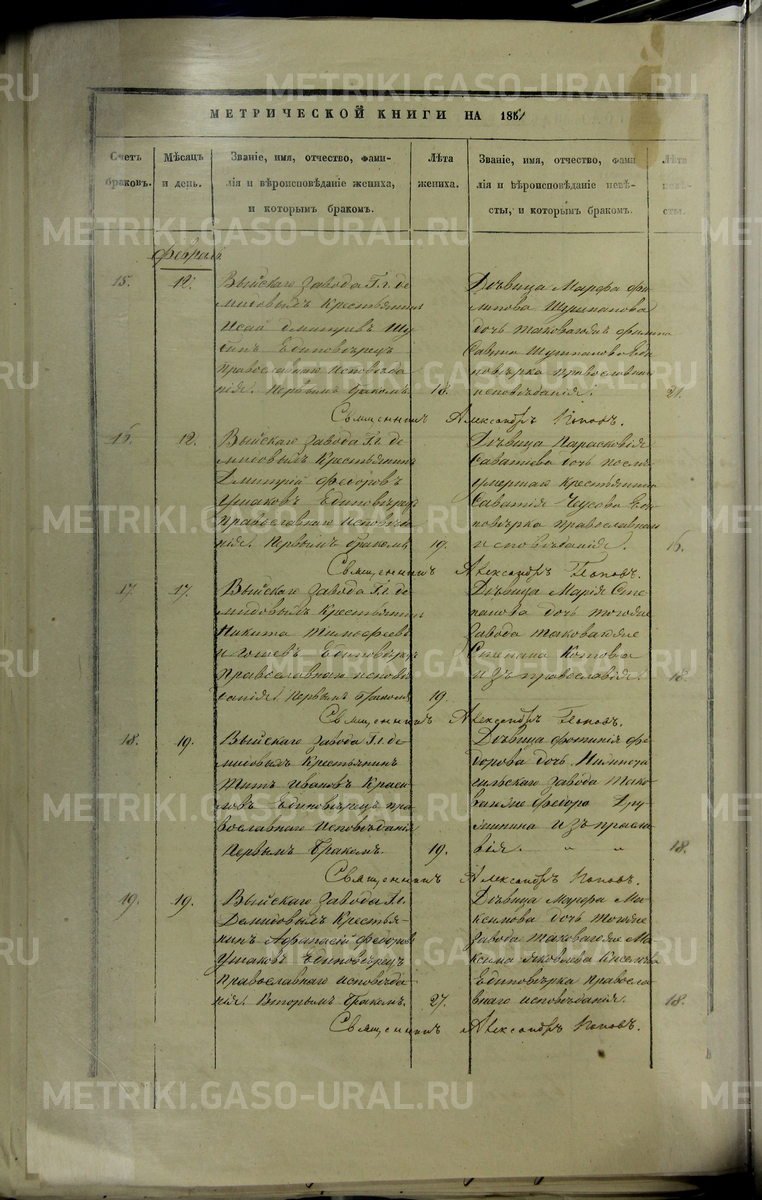 МЕТРИЧЕСКОЙ КНИГИ НА 1861
Счетъ браковъ.
Мѣсяцъ и день.
Званіе, имя, отчество, фами-
лія и вѣроисповѣданіе жениха,
и которымъ бракомъ.
Лѣта жениха.
Званіе, имя, отчество, фами
лія и вѣроисповѣданіе невѣ-
сты, и которымъ бракомъ.
Лѣта невѣ-
сты.
Февраль
15.
12.
Выйскаго завода Гг. Де
мидовыхъ Крестьянинъ
Исай Дмитріевъ
Единовѣрецъ
православнаго исповѣда
нія. Первымъ бракомъ.
18.
Дѣвица Марфа Фи
липова
дочь таковагоже Филипа
Савина
новѣрка православнаго
исповѣданія.
21.
Священникъ Александръ Поповъ.
16.
12.
Выйскаго завода Гг. Де
мидовыхъ Крестьянинъ
Дмитрій Федоровъ
Ушаковъ Единовѣрецъ
православнаго исповѣда
нія. Первымъ бракомъ.
19.
Дѣвица Парасковія
Саватѣева дочь послѣ
умершаго крестьянина
Саватія Чусова Еди
новѣрка православнаго
исповѣданія.
16.
Священникъ Александръ Поповъ.
17.
17.
Выйскаго завода Гг. Де
мидовыхъ Крестьянинъ
Никита Тимофеевъ
Единовѣрецъ
православнаго исповѣ
данія. Первымъ бракомъ
19.
Дѣвица Марія Сте
панова дочь тогоже
завода таковагоже
Степана Котова
изъ православія.
18.
Священникъ Александръ Поповъ.
18.
19.
Выйскаго завода Гг. Де
мидовыхъ Крестьянинъ
Титъ Ивановъ Краси
ловъ Единовѣрецъ пра
вославнаго исповѣданія
Первымъ бракомъ.
19.
Дѣвица Фотинія Фе
дорова дочь Нижнета
гильскаго завода тако
вагоже Федора
изъ правосла
вія. " "
18.
Священникъ Александръ Поповъ.
19.
19.
Выйскаго завода Гг.
Демидовыхъ Крестья-
нинъ Афанасій Федоровъ
Ушаковъ Единовѣрецъ
православнаго исповѣда
нія. Вторымъ бракомъ.
27.
Дѣвица Марфа Ма
ксимова дочь тогоже
завода таковагоже Ма
ксима Яковлева
Единовѣрка правосла
внаго исповѣданія.
18.
Священникъ Александръ Поповъ.
METRIKI.GASO-URAL.RU